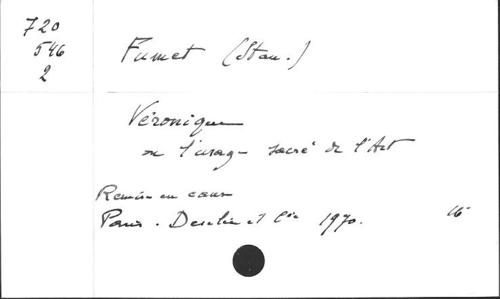 720
546
2
Fumet (Stan.)
Véronique
ou l'usage sacré de l'Art
Remise en cause
Paris. Desclée et Cie 1970.
16